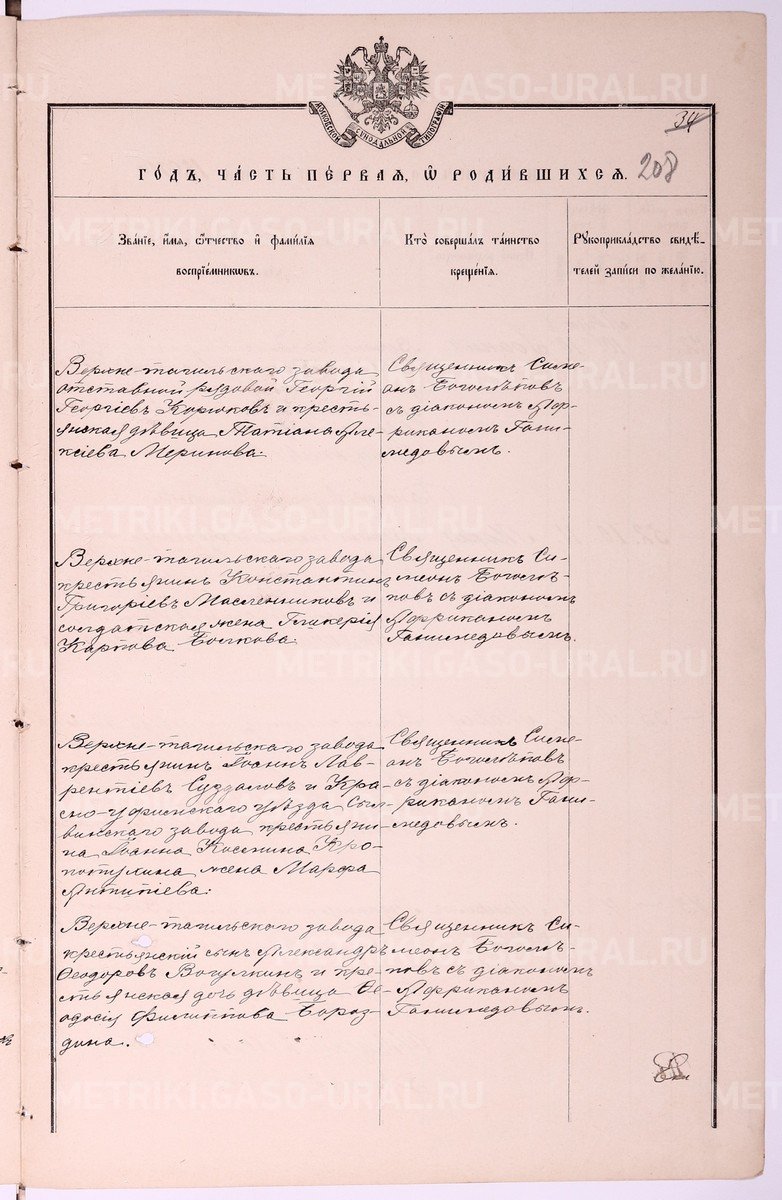 МОСКОВСКОЙ СѴНОДАЛЬНОЙ ТИПОГРАФІИ
34
208
ГО́ДЪ, ЧА́СТЬ ПЕ́РВАЯ, Ѽ РОДИ́ВШИХСЯ.
Зва́нїе, и҆́мя, ѻ҆́тчество и҆ фами́лїя
воспрїе́мниковъ.
Кто̀ соверша́лъ та́инство
креще́нїя.
Рукоприкла́дство свидѣ́-
телей за́писи по жела́нїю.
Верхне-тагильскаго завода
отставной рядовой Георгій
Георгіевъ Корюковъ и кресть-
янская дѣвица Татіана Але-
ксіева Меринова.
Священникъ Симе-
онъ Богослѣповъ
съ діакономъ Аф-
риканомъ Гани-
медовымъ.
Верхне-тагильскаго завода
крестьянинъ Константинъ
Григоріевъ Масленниковъ и
солдатская жена Гликерія
Карпова Бочкова.
Священникъ Си-
меонъ Богослѣ-
повъ съ діакономъ
Африканомъ
Ганимедовымъ.
Верхне-тагильскаго завода
крестьянинъ Іоаннъ Лав-
рентіевъ Суздаловъ и Кра-
сно-уфимскаго уѣзда Сыл-
винскаго завода крестьяни-
на Іоанна Космина Кро-
потухина жена Марѳа
Антипіева.
Священникъ Симе-
онъ Богослѣповъ
съ діакономъ Аф-
риканомъ Гани-
медовымъ.
Верхне-тагильскаго завода
крестьянскій сынъ Александръ
Ѳеодоровъ Вогулкинъ и кре-
стьянская дочь дѣвица Ѳе-
одосія Филиппова Бороз-
дина.
Священникъ Си-
меонъ Богослѣ-
повъ съ діакономъ
Африканомъ
Ганимедовымъ.
METRIKI.GASO-URAL.RU